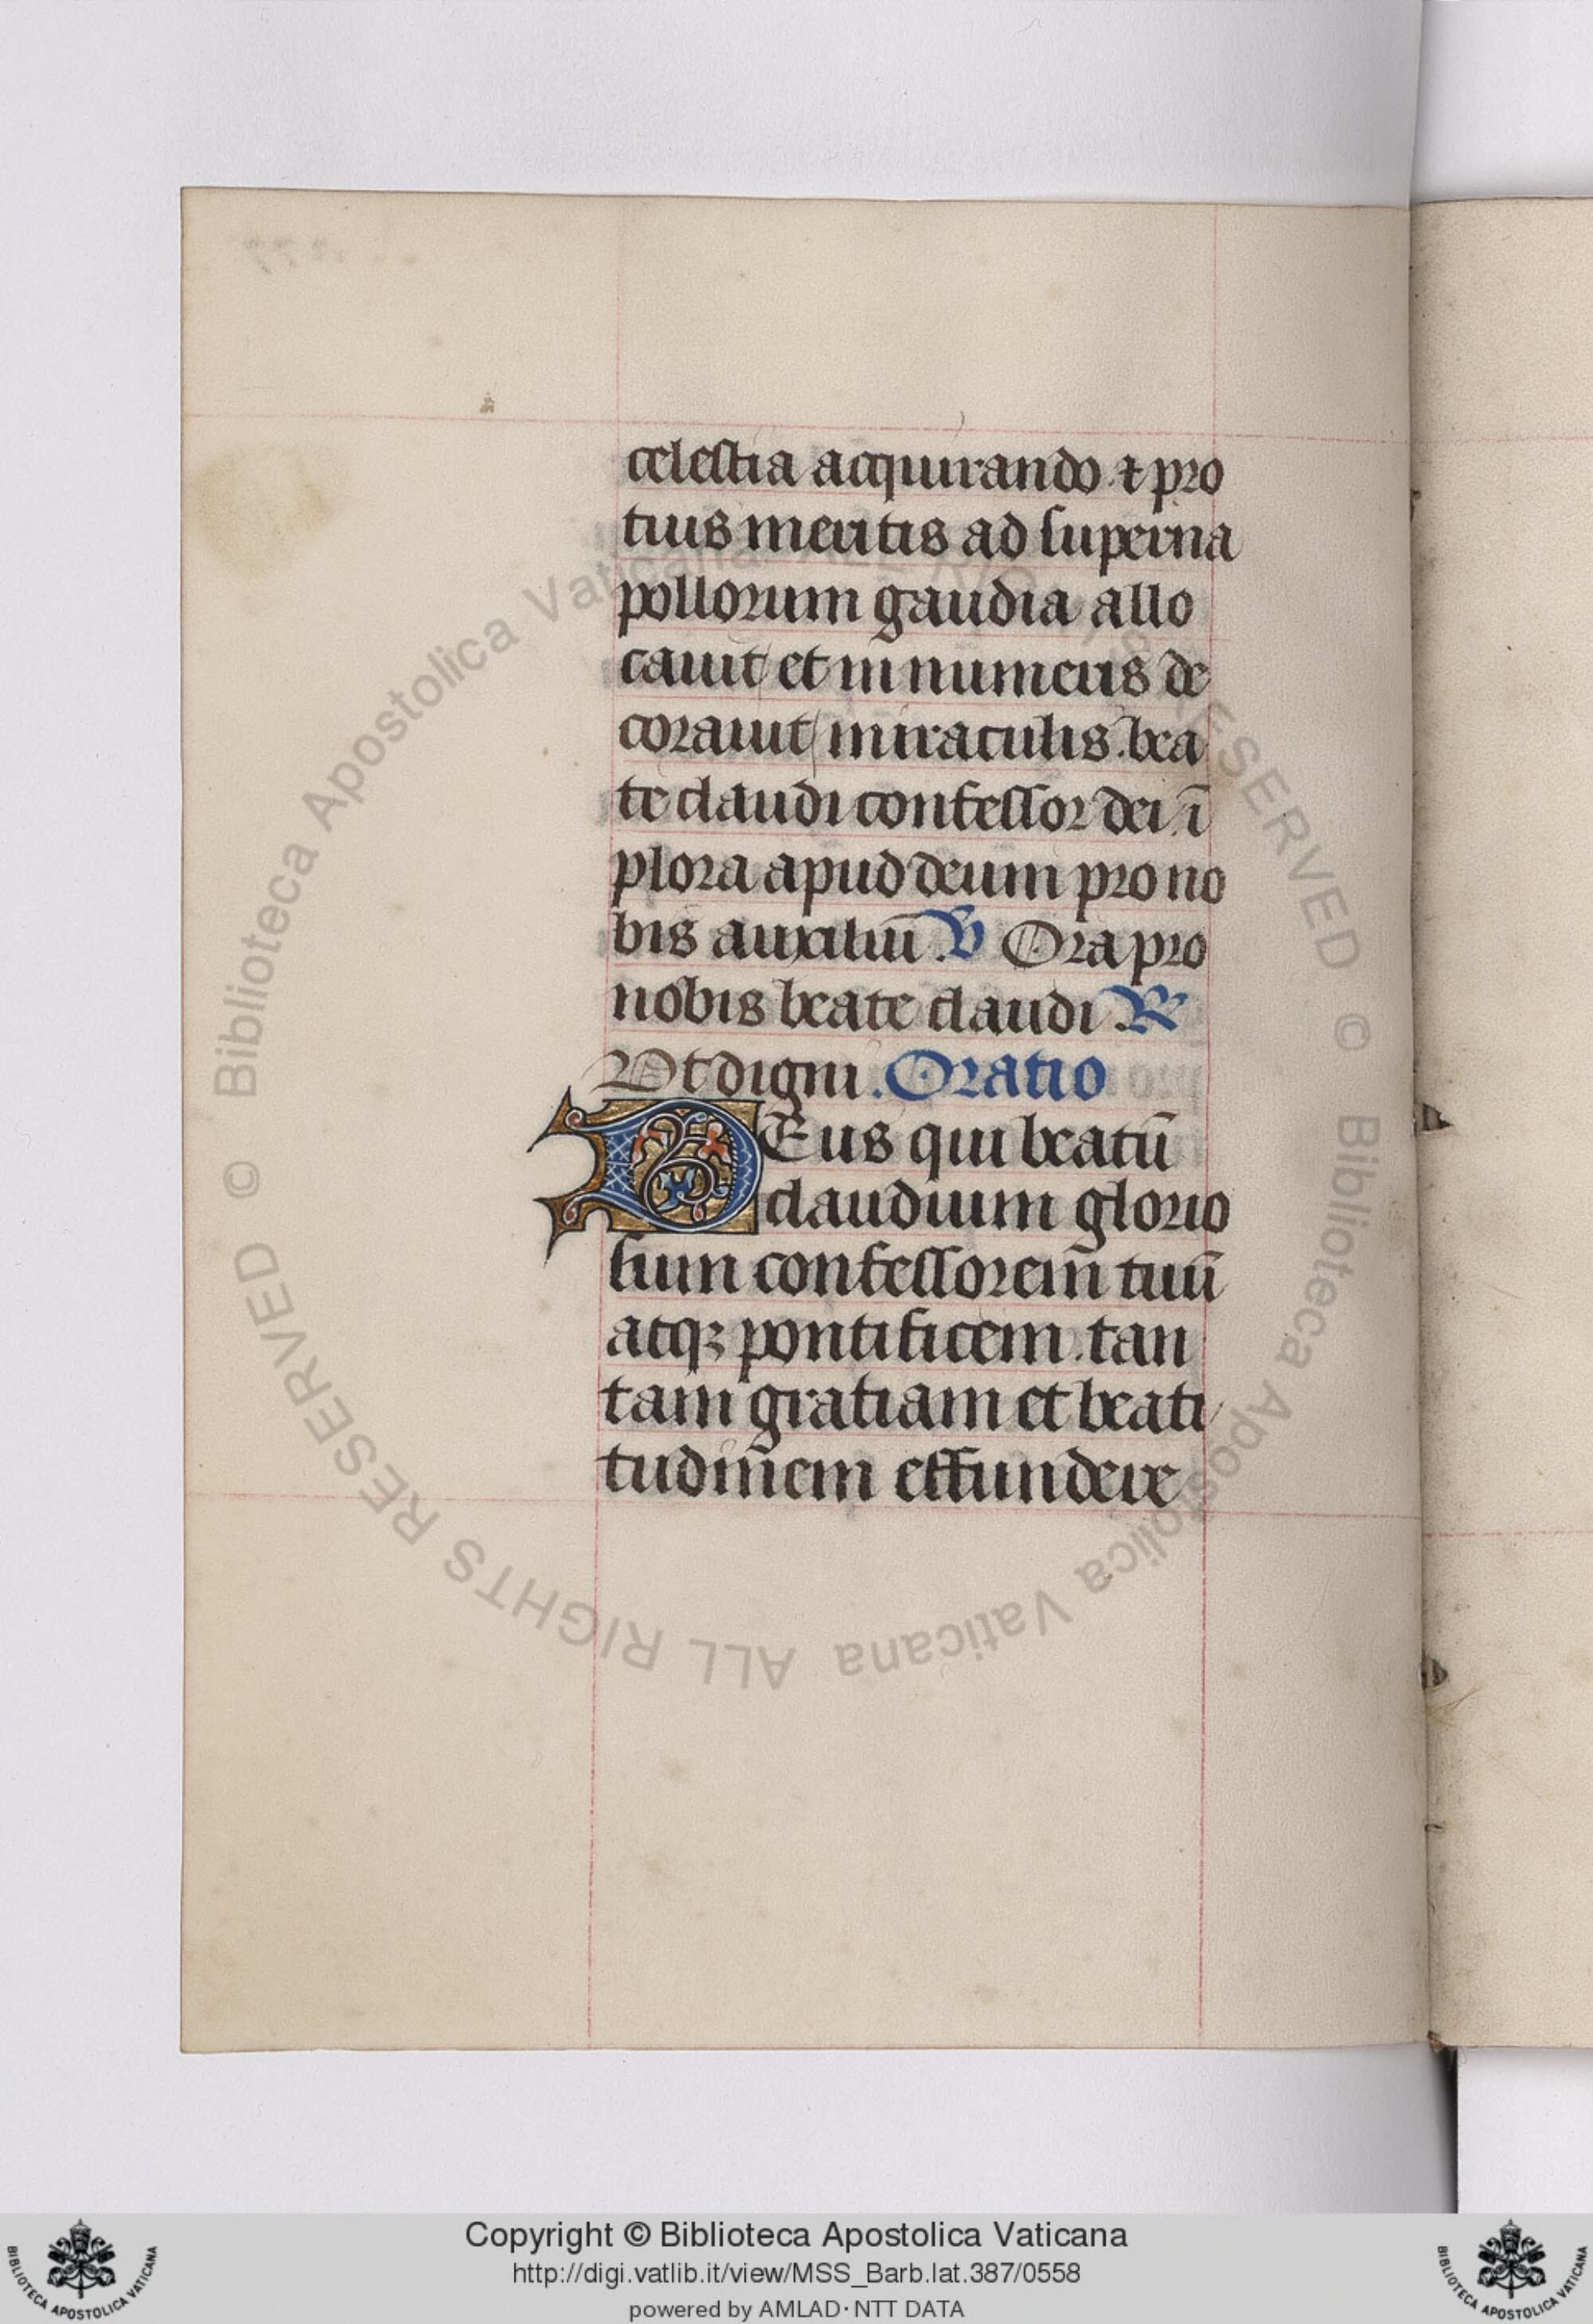 celestia acquirando ⁊ pro
tuis meritis ad superna
pollorum gaudia allo
cauit et innumeris de
corauit miraculis. bea
te claudi confessor dei ī
plora apud deum pro no
bis auxiliū. V Ora pro
nobis beate claudi R
Vt digni. Oratio
DEus qui beatū
claudium glorio
sum confessorem̄ tuū
atqꝫ pontificem. tan
tam gratiam et beati
tudinem effundere
© Biblioteca Apostolica Vaticana ALL RIGHTS RESERVED © Biblioteca Apostolica Vaticana ALL RIGHTS RESERVED
Copyright © Biblioteca Apostolica Vaticana
http://digi.vatlib.it/view/MSS_Barb.lat.387/0558
powered by AMLAD·NTT DATA
BIBLIOTECA APOSTOLICA VATICANA
BIBLIOTECA APOSTOLICA VATICANA